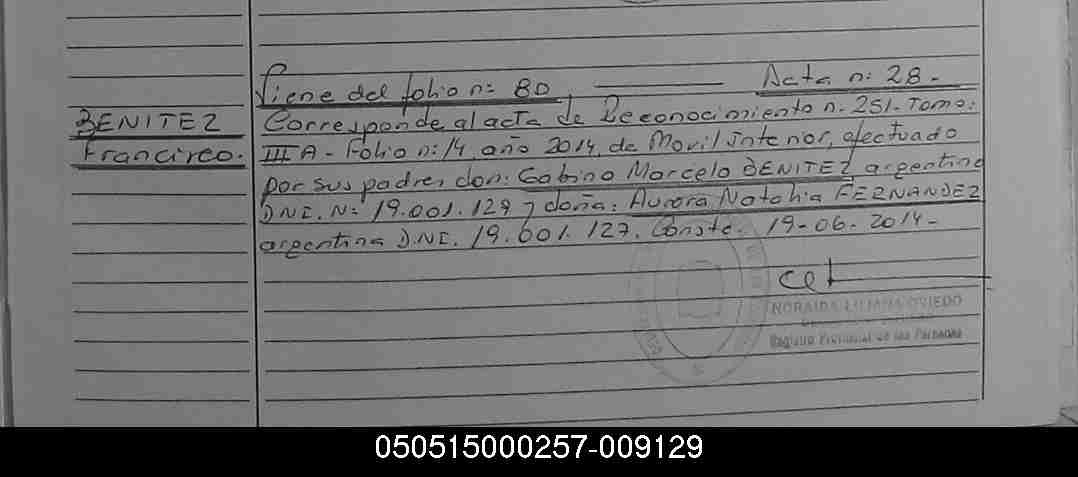 Viene del folio n: 80 ——— Acta n: 28.-
BENITEZ
Francisco.
Corresponde al acta de Reconocimiento n. 251. Tomo:
III A - Folio n: 14, año 2014, de Movil Interior, efectuado
por sus padres don: Gabino Marcelo BENITEZ argentino
DNI. N: 19.001.129 y doña: Aurora Natalia FERNANDEZ
argentina D.NI. 19.001.127. Conste. 19-06-2014-
NORAIDA LILIANA OVIEDO
Registro Provincial de las Personas
050515000257-009129